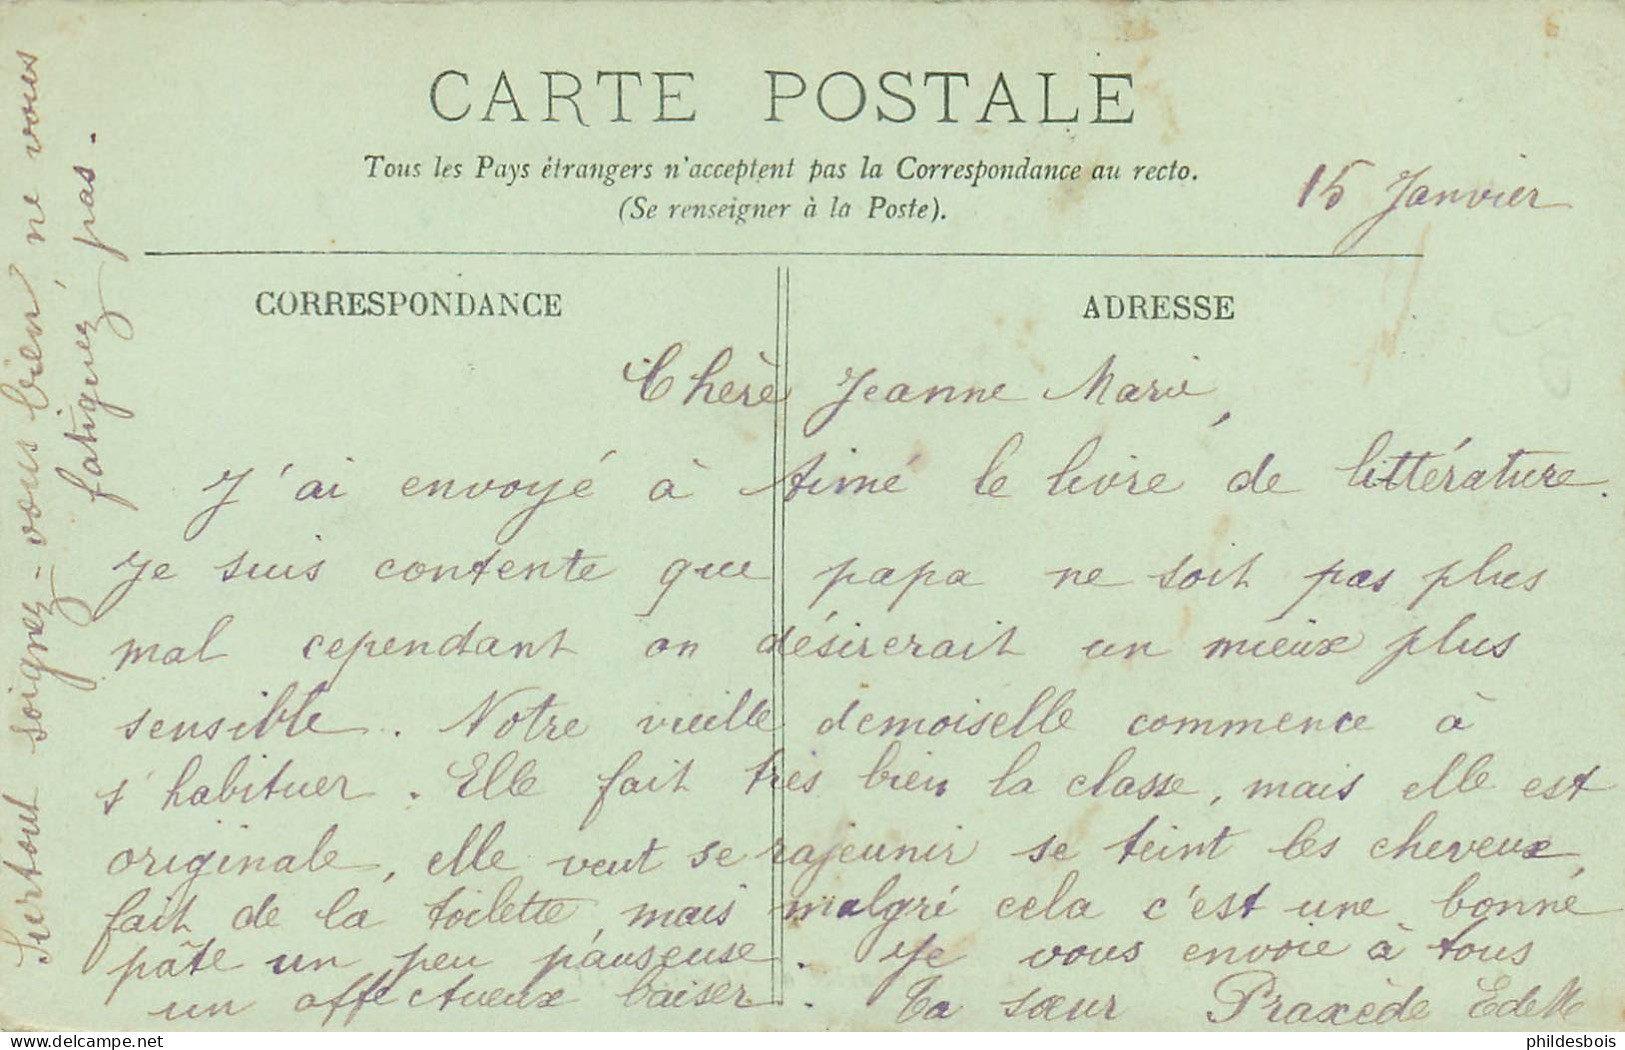 CARTE POSTALE
Tous les Pays étrangers n'acceptent pas la Correspondance au recto.
(Se renseigner à la Poste).
15 Janvier
CORRESPONDANCE
ADRESSE
Chère Jeanne Marie,
J'ai envoyé à Aimé le livre de littérature.
Je suis contente que papa ne soit pas plus
mal cependant on désirerait un mieux plus
sensible. Notre vieille demoiselle commence à
s'habituer. Elle fait très bien la classe, mais elle est
originale, elle veut se rajeunir se teint les cheveux,
fait de la toilette, mais malgré cela c'est une bonne
pâte un peu pauseuse. Je vous envoie à tous
un affectueux baiser. Ta sœur Praxède
Surtout soignez-vous bien, ne vous
fatiguez pas.
phildesbois